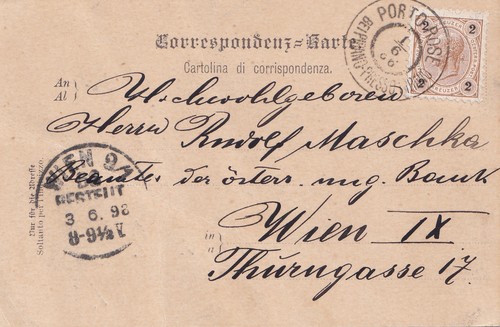 Correspondenz-Karte
Cartolina di corrispondenza.
An
Al
Hochwohlgeboren
Herrn Rudolf Maschka
Beamter der österr. ung. Bank
in
a
Wien IX
Thurngasse 17.
Nur für die Adresse
Soltanto per l'indirizzo.
PORTOROSE
2 2
2 2
WIEN 9/1
BESTELLT
3 6. 98